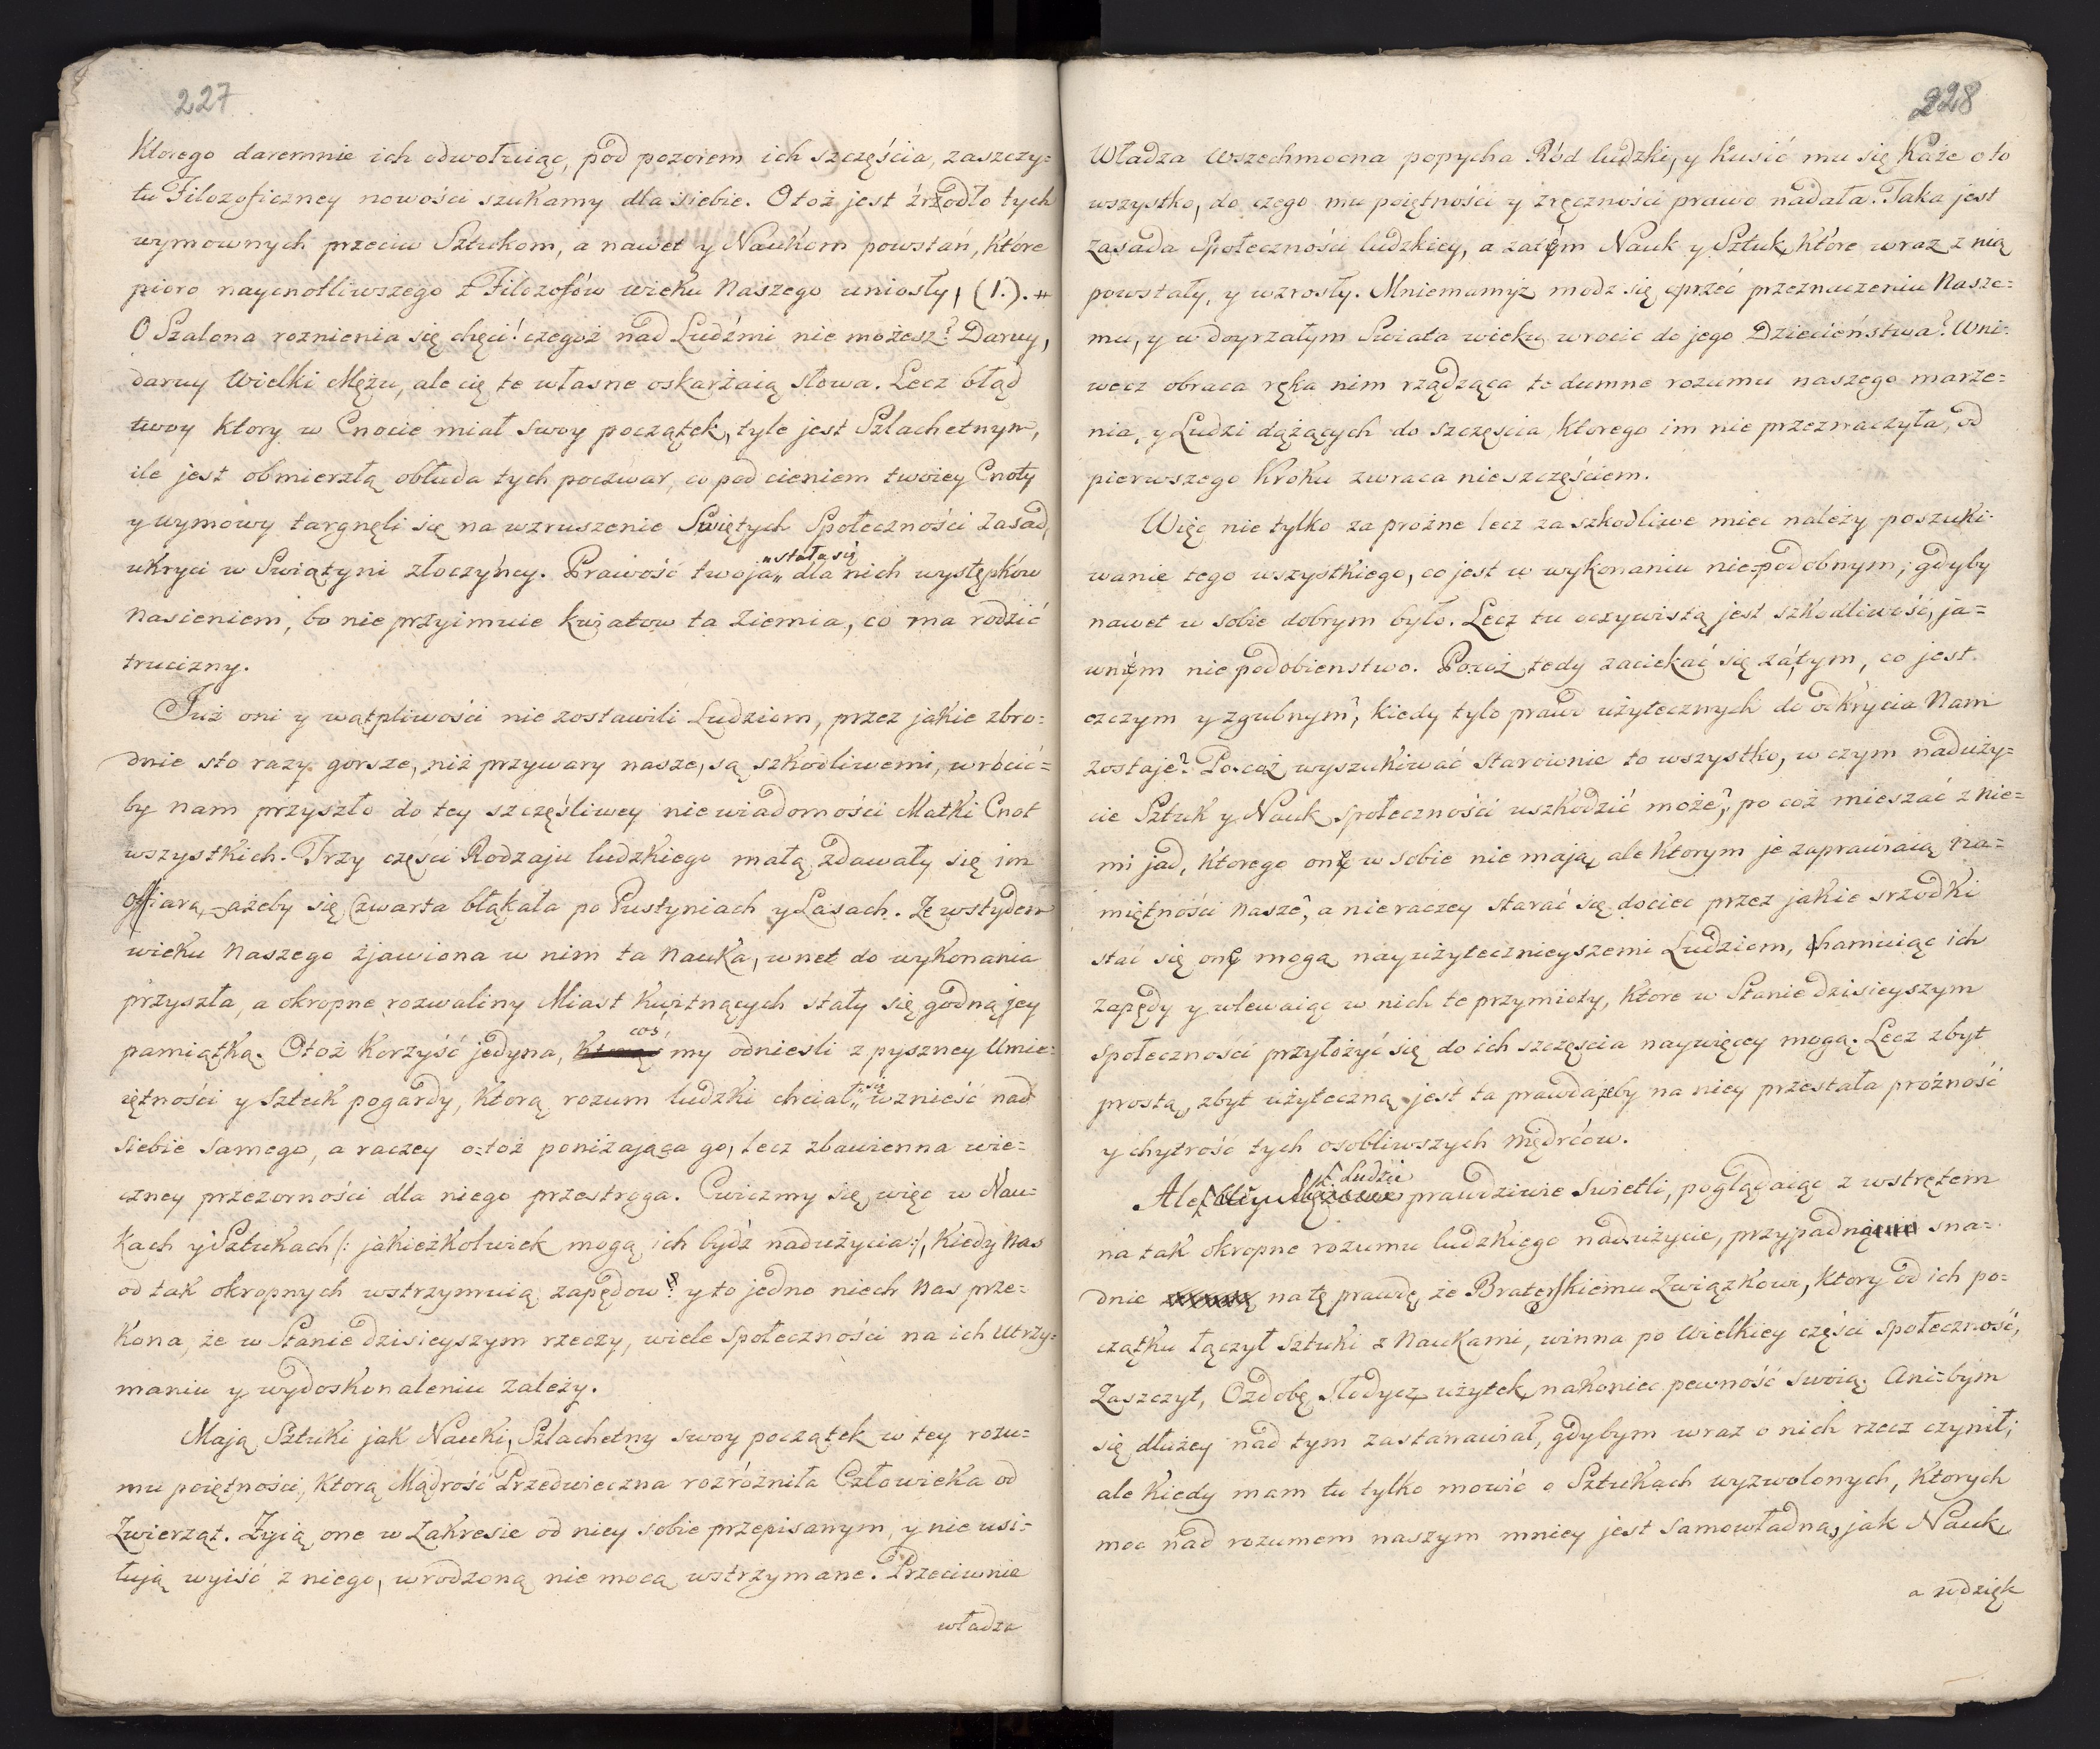 227
Ktorego daremnie ich odwołuiąc, pod pozorem ich szczęścia, zaszczy=
tu Filozoficzney nowości szukamy dla siebie. Otoż jest źrzodło tych
wymownych przeciw Sztukom, a nawet y Naukom powstań, które
pioro naycnotliwszego z Filozofów wieku Naszego uniosły, (1.). #
O Szalona roznienia się chęci! czegoż nad Ludźmi nie możesz? Daruy,
daruy Wielki Mężu, ale cię te własne oskarżaią słowa. Lecz błąd
twoy Ktory w Cnocie miał swoy początek, tyle jest Szlachetnym,
ile jest obmierzłą obłuda tych poczwar, co pod cieniem twoiey Cnoty
y wymowy targnęli się na wzruszenie Swiętych Społeczności Zasad,
ukryci w Swiątyni złoczyńcy. Prawość twoja „stała się„ dla nich występkow
Nasieniem, bo nie przyimuie kwiatow ta Ziemia, co ma rodzić
trucizny.
Już oni y wątpliwości nie zostawili Ludziom, przez jakie zbro=
dnie sto razy gorsze, niż przywary nasze, są szkodliwemi, wrócić=
by nam przyszło do tey szczęśliwey niewiadomości Matki Cnot
wszystkich. Trzy częsci Rodzaju ludzkiego małą zdawały się im
offiarą, ażeby się Czwarta błąkała po Pustyniach y Lasach. Ze wstydem
wieku Naszego zjawiona w nim ta Nauka, wnet do wykonania
przyszła, a okropne rozwaliny Miast Kwitnących stały się godną jey
pamiątką. Otoż Korzyść jedyna, cos my odniesli z pyszney Umie=
iętności y Sztuk pogardy, Ktorą rozum ludzki chciał „się wznieść nad
siebie samego, a raczey o=toż poniżająca go, lecz zbawienna wie=
czney przezorności dla niego przestroga. Cwiczmy się więc w Nau=
kach y Sztukach /: jakieżkolwiek mogą ich bydź nadużycia :/, Kiedy Nas
od tak okropnych wstrzymuią zapędow? y to jedno niech Nas prze=
Kona, że w Stanie dzisieyszym rzeczy, wiele Społeczności na ich Utrzy=
maniu y wydoskonaleniu Zależy.
Mają Sztuki jak Nauki, Szlachetny swoy początek w tey rozu=
mu poiętności, Ktorą Mądrość Przedwieczna rozróżniła Człowieka od
Zwierząt. Żyią one w Zakresie od niey sobie przepisanym, y nie usi=
łują wyiść z niego, wrodzoną nie mocą wstrzymane. Przeciwnie
władza
228
Władza Wszechmocna popycha Ród ludzki, y Kusić mu się Każe o to
wszystko, do czego mu poiętności y zręczności prawo nadała. Taka jest
Zasada Społeczności ludzkiey, a zatym Nauk y Sztuk, Które wraz z nią
powstały, y wzrosły. Mniemamyż modz się oprzeć przeznaczeniu Nasze=
mu, y w doyrzałym Swiata wieku wrocic do jego Dziecieństwa? Wni=
wecz obraca ręka nim rządząca te dumne rozumu naszego marze=
nia, y Ludzi dążących do szczęscia, Ktorego im nie przeznaczyła, od
pierwszego Kroku zwraca nieszczęściem.
Więc nie tylko za prożne lecz za szkodliwe miec należy poszuki=
wanie tego wszystkiego, co jest w wykonaniu nie=podobnym; gdyby
nawet w sobie dobrym było. Lecz tu oczywistą jest szkodliwość, ja=
wnym niepodobienstwo. Pocoż tedy zaciekać się zátym, co jest
czczym y zgubnym?, kiedy tylo prawd użytecznych do odkrycia Nam
zostaje? Po=coż wyszukiwać starownie to wszystko, w czym naduży=
cie Sztuk y Nauk społeczności uszkodzić może?, po coż mieszać z nie=
mi jad, Ktorego one w sobie nie mają, ale Ktorym je zaprawiaią na=
miętności Nasze?, a nie raczey starać się dociec przez jakie srzodki
stać się one mogą nayużytecznieyszemi Ludziom, hamuiąc ich
zapędy y wlewaiąc w nich te przymioty, Ktore w Stanie dzisieyszym
społeczności przyłożyć się do ich szczęscia naywięcey mogą. Lecz zbyt
prostą, zbyt użyteczną jest ta prawda, żeby na niey przestała próżność
y chytrość tych osobliwszych Mędrcow.
Ale Ludzie prawdziwie Swietli, poglądaiąc z wstrętem
na tak okropne rozumu ludzkiego nadużycie, przypadną sna=
dnie na tę prawdę, że Braterskiemu Związkowi, Ktory od ich po=
czątku łączył Sztuki z Naukami, winna po Wielkiey części społeczność,
Zaszczyt, Ozdobę, Słodycz, użytek, nakoniec pewność swoią. Ani=bym
się dłużey nad tym zastanawiał, gdybym wraz o nich rzecz czynił;
ale Kiedy mam tu tylko mowić o Sztukach wyzwolonych, Ktorych
moc nad rozumem naszym mniey jest samowładną, jak Nauk,
a wdzięk